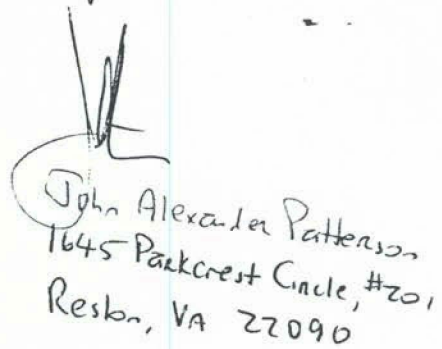 John Alexander Patterson
1645 Parkcrest Circle, #201
Reston, VA 22090